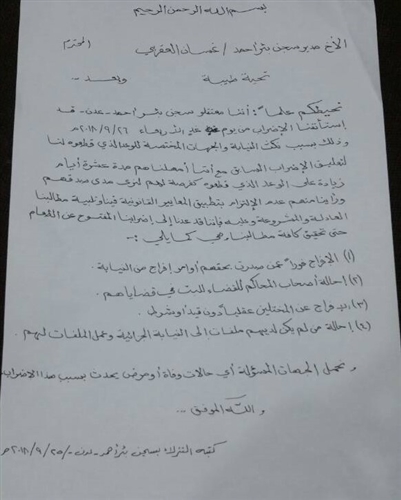 بسم الله الرحمن الرحيم
الأخ مدير سجن بئر احمد / غسان العقربي المحترم
تحية طيبة وبعد ..
نحيطكم علماً : أننا معتقلو سجن بئر احمد - عدن - قد
إستأنفنا الإضراب من يوم غدٍ الأربعاء ٢٠١٨/٩/٢٦م
وذلك بسبب نكث النيابة والجهات المختصة للوعد الذي قطعوه لنا
لتعليق الإضراب السابق مع أننا أمهلناهم مدة عشرة أيام
زيادة على الوعد الذي قطعوه كفرصة لهم لنرى مدى صدقهم
ورأينا منهم عدم الإلتزام بتطبيق المعايير القانونية مطالبنا
العادلة والمشروعة وعليه فإننا قد عدنا إلى إضرابنا المفتوح عن الطعام
حتى تحقيق كافة مطالبنا وهي كما يأتي :-
(١) الإفراج فوراً عمن صدرت بحقهم أوامر إفراج من النيابة .
(٢) إحالة أصحاب المحاكم للقضاء للبت في قضاياهم .
(٣) الإفراج عن المختلين عقلياً دون قيد أو شرط .
(٤) إحالة من لم يكن لديهم ملفات إلى النيابة الجزائية وعمل الملفات لهم .
ونحمل الجهات المسؤولة أي حالات وفاة أو مرض يحدث بسبب هذا الاضراب
والله الموفق ...
بسجن بئر أحمد - عدن - ٢٠١٨/٩/٢٥م